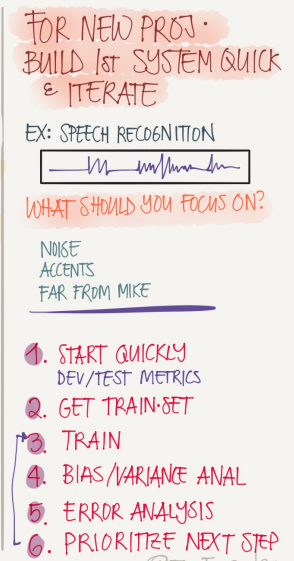 FOR NEW PROJ.
BUILD 1st SYSTEM QUICK
& ITERATE
EX: SPEECH RECOGNITION
WHAT SHOULD YOU FOCUS ON?
NOISE
ACCENTS
FAR FROM MIKE
1. START QUICKLY
DEV/TEST METRICS
2. GET TRAIN-SET
3. TRAIN
4. BIAS/VARIANCE ANAL
5. ERROR ANALYSIS
6. PRIORITIZE NEXT STEP